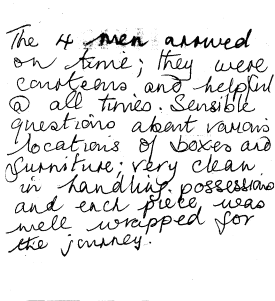 The 4 men arrived
on time; they were
courteous and helpful
@ all times. Sensible
questions about various
locations of boxes and
furniture; very clean
in handling possessions
and each piece was
well wrapped for
the journey.